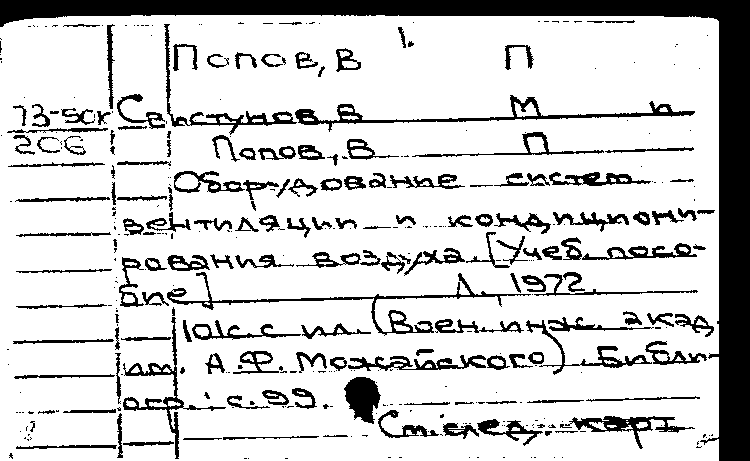 1.
Попов, В П
73-50к Свистунов, В М и
206 Попов, В П
Оборудование систем
вентиляции и кондициони-
рования воздуха. [Учеб. посо-
бие] Л. 1972.
101с. с ил. (Воен. инж. акад.
им. А.Ф. Можайского). Библи-
огр.: с. 99.
См. след. карт